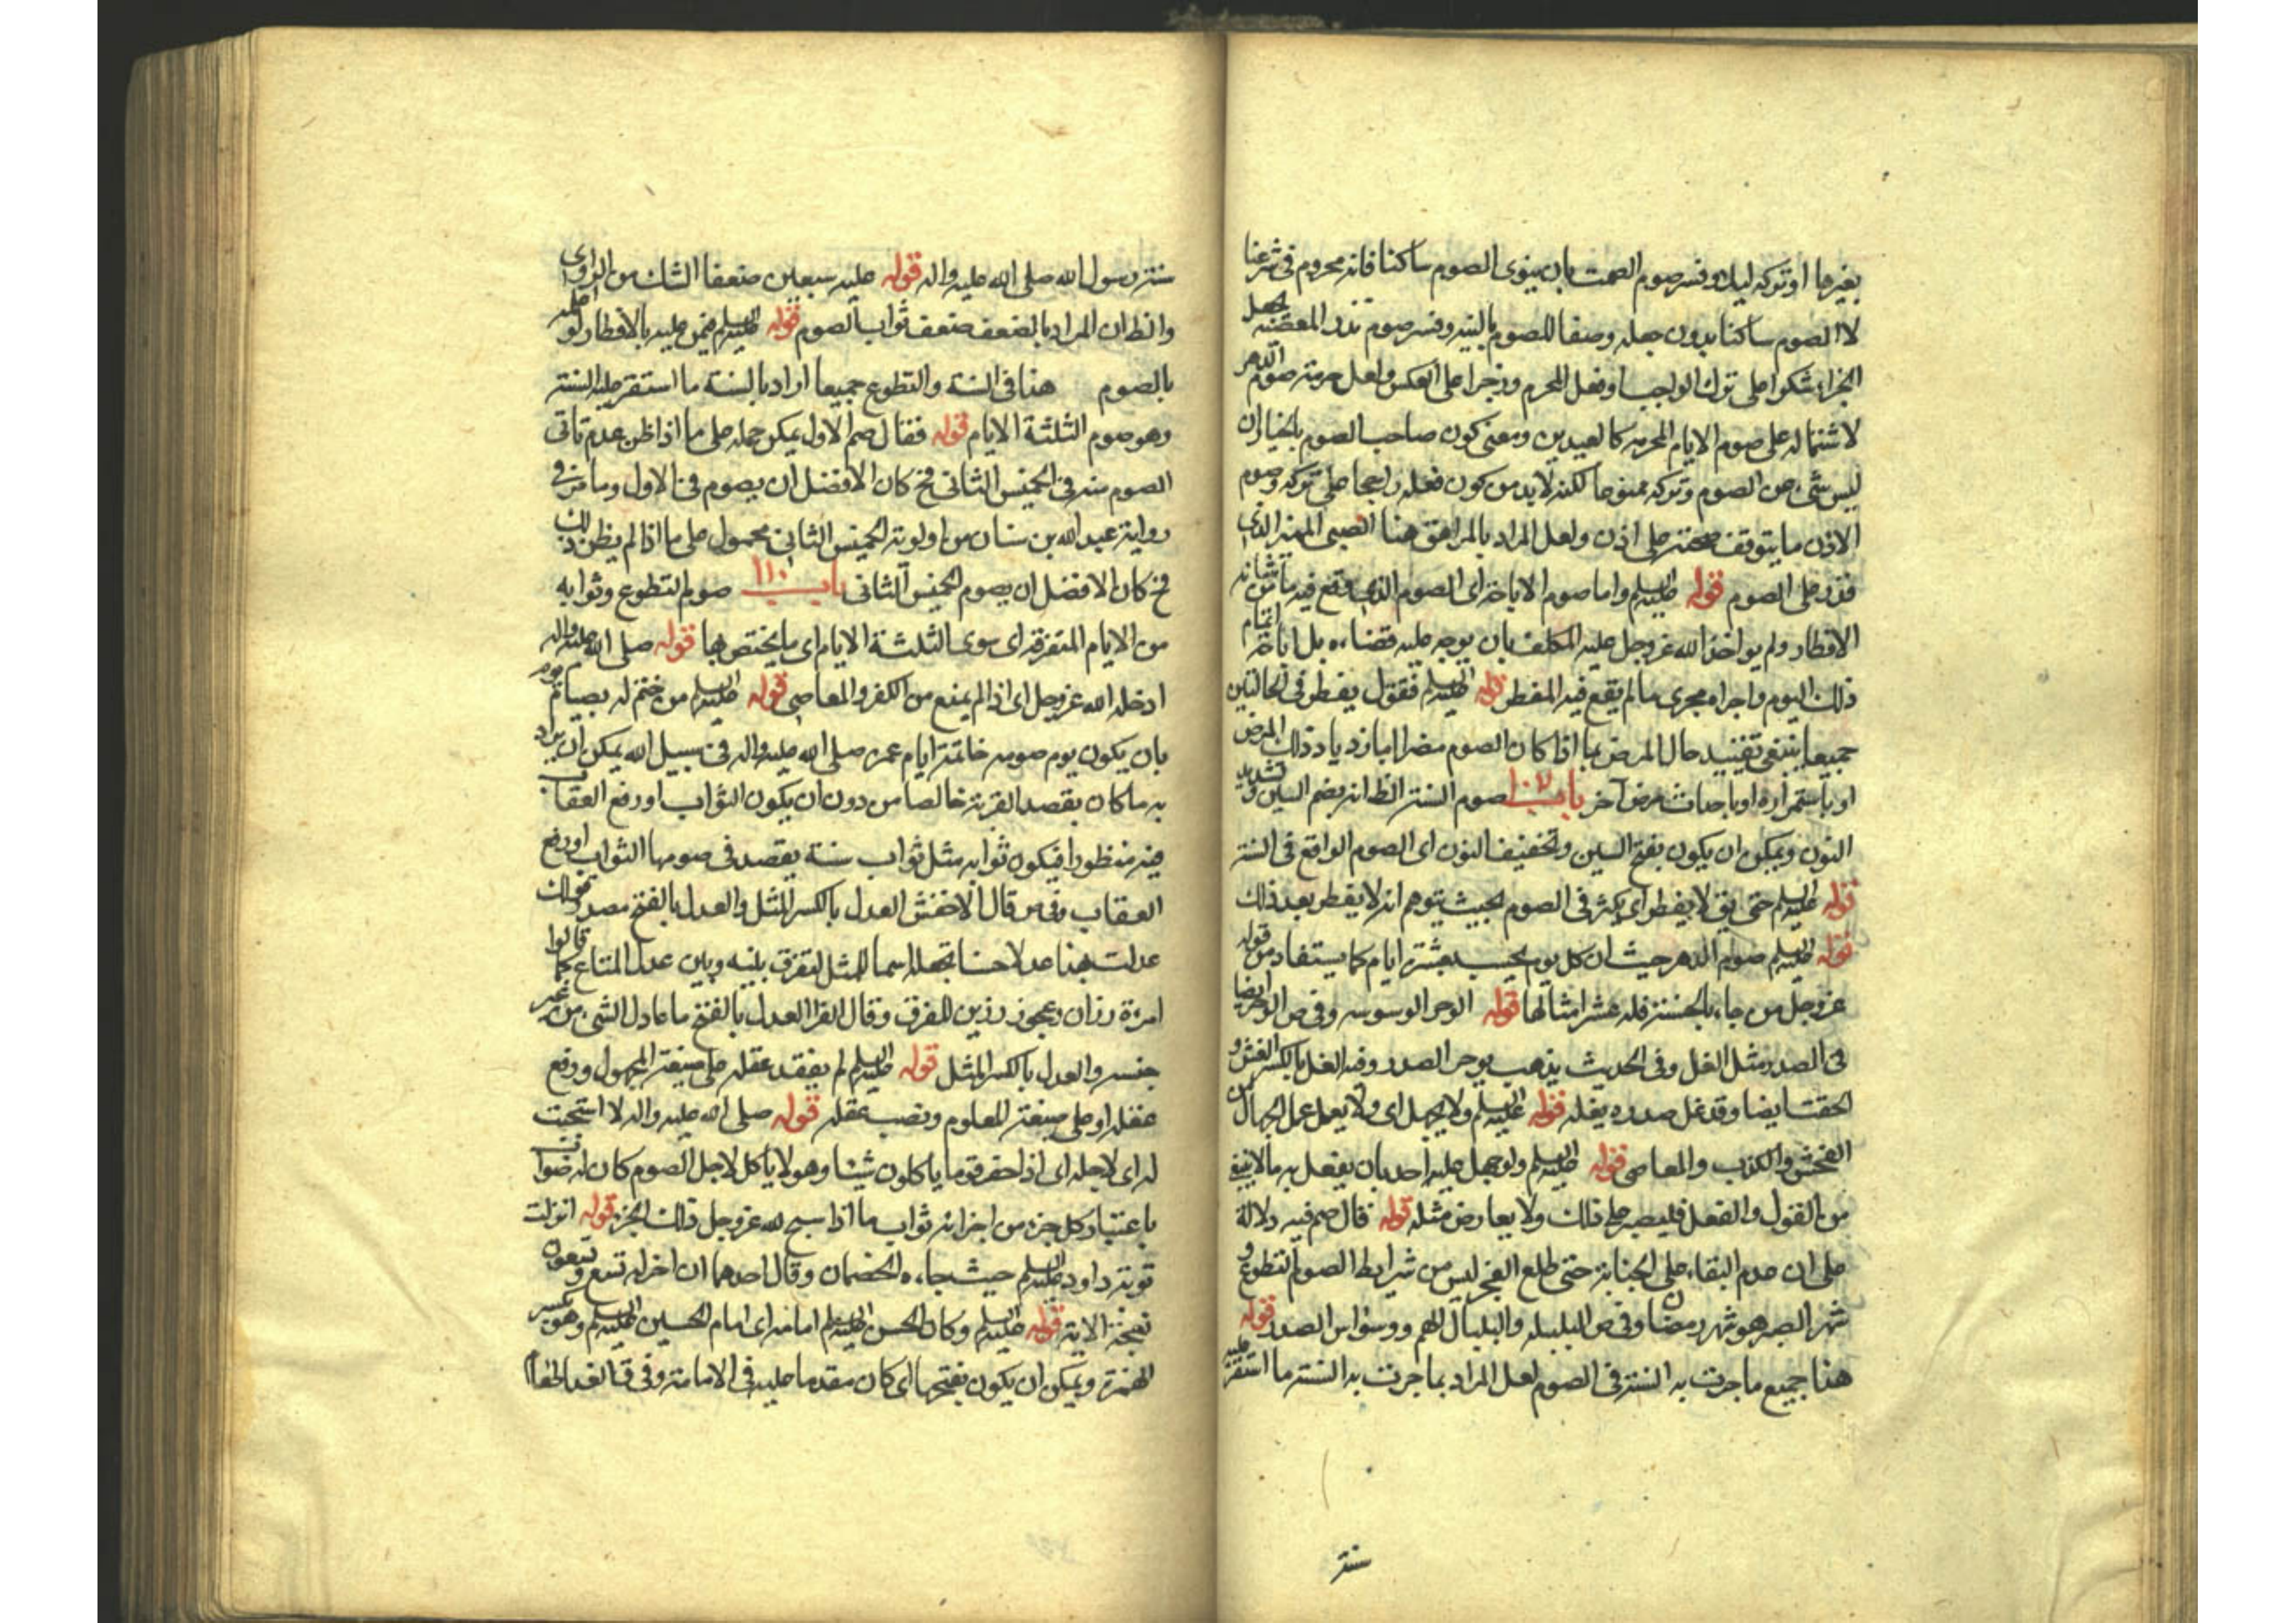 بغيرها او تركه ليلا وفسر صوم الصمت بان ينوى الصوم ساكتا فانه محروم فى شرعنا
لا الصوم ساكتا بدون جعله وصفا للصوم بالنية وفسر صوم نذر المعصية بجعل
الجزاء شكرا على ترك الواجب او فعل المحرم وزجرا على العكس ولعل حرمة صوم الدهر
لاشتماله على صوم الايام المحرمه كالعيدين ومعنى كون صاحب الصوم بالخيار ان
ليس شئ من الصوم وتركه ممنوعا لكنه لابد من كون فعله راجحا على تركه وصوم
الاذن ما يتوقف صحته على اذن ولعل المراد بالمراهق هنا الصبى المميز الذى
قدر على الصوم قوله عليه السلم واما صوم الاباحة اى الصوم الذى وقع فيه ما من شانه
الافطار ولم يواخذ الله عز وجل عليه المكلف بان يوجه عليه قضاءه بل اباحة اتمام
ذلك اليوم واجراه مجرى ما لم يقع فيه المفطر قوله عليه السلم فنقول يفطر فى الحالتين
جميعا ينبغى تقييد حال المرض بما اذا كان الصوم مضرا اما بازدياد ذلك المرض
او باستمراره او باحداث مرض آخر باب ١٠٧ صوم السنة الظ انه بضم السين وتشديد
النون ويمكن ان يكون بفتح السين وتخفيف النون اى الصوم الواقع فى السنة
قوله عليه السلم حتى يق لا يفطر اى يكثر فى الصوم بحيث يتوهم انه لا يفطر بعد ذلك
قوله عليه السلم صوم الدهر حيث ان كل يوم يحسب بعشرة ايام كما يستفاد من قوله
عز وجل من جاء بالحسنة فله عشر امثالها قوله الوحر الوسوسه وفى ص الوحر ايضا
فى الصدر مثل الغل وفى الحديث يذهب بوحر الصدر وفيه الغل بالكسر الغش و
الحقد ايضا وقد غل صدره يغل قوله عليه السلم ولا يجهل اى ولا يعمل عمل الجهال من
الفحش والكذب والمعاصى قوله عليه السلم ولو جهل عليه احد بان يفعل به ما لا ينبغى
من القول والفعل فليصبر على ذلك ولا يعارض مثله قوله قال صم فيه دلالة
على ان عدم البقاء على الجنابة حتى طلع الفجر ليس من شرايط الصوم التطوع و
شهر الصبر هو شهر رمضان وفى ص البلبلة والبلبال الهم ووسواس الصدر قوله
هنا جميع ما جرت به السنة فى الصوم لعل المراد بما جرت به السنة ما استقر عليه
سنة
سنة رسول الله صلى الله عليه واله قوله عليه سبعين ضعفا الشك من الراوى
والظ ان المراد بالضعف ضعف ثواب الصوم قوله عليه السلم فيمن عليه بالافطار لو اعلمه
بالصوم هنا فى السنة والتطوع جميعا اراد بالسنة ما استقر عليه السنة
وهو صوم الثلثة الايام قوله فقال صم الاول يمكن حمله على ما اذا ظن عدم تاتى
الصوم منه فى الخميس الثانى فح كان الافضل ان يصوم فى الاول وما مر فى
رواية عبد الله بن سنان من اولوية الخميس الثانى محمول على ما اذا لم يظن ذلك
فح كان الافضل ان يصوم الخميس الثانى باب ١١٠ صوم التطوع وثوابه
من الايام المتفرقة اى سوى الثلثة الايام اى ما يختص بها قوله صلى الله عليه واله
ادخله الله عز وجل اى اذا لم يمنع من الكفر والمعاصى قوله عليه السلم من ختم له بصيام يوم
بان يكون يوم صومه خاتمة ايام عمره صلى الله عليه واله فى سبيل الله يمكن ان يراد
به ما كان بقصد القربة خالصا من دون ان يكون الثواب او رفع العقاب
فيه منظورا فيكون ثوابه مثل ثواب سنة يقصد فى صومها الثواب او رفع
العقاب وفى ص قال الاخفش العدل بالكسر المثل والعدل بالفتح مصدر قولك
عدلت بهذا عدلا حسنا تجعله اسما للمثل لتفرق بينه وبين عدل المتاع كما قالوا
امرءة رزان وعجوز رزين للفرق وقال الفرا العدل بالفتح ما عادل الشئ من غير
جنسه والعدل بالكسر المثل قوله عليه السلم لم يفقد عقله على صيغة المجهول ورفع
عقله او على صيغة المعلوم ونصب عقله قوله صلى الله عليه واله الا سبحت
له اى لاجله اى اذا حضر قوما ياكلون شيئا وهو لا ياكل لاجل الصوم كان له ثواب
باعتبار كل جزء من اجزائه ثواب ما اذا سبح لله عز وجل ذلك الجزء قوله انزلت
توبة داود عليه السلم حيث جاءه الخصمان وقال احدهما ان اخى له تسع وتسعون
نعجة الاية قوله عليه السلم وكان الحسن عليه السلم امامه اى امام الحسين عليه السلم وهو بكسر
الهمزة ويمكن ان يكون بفتحها اى كان مقدما عليه فى الامامة وفى ق